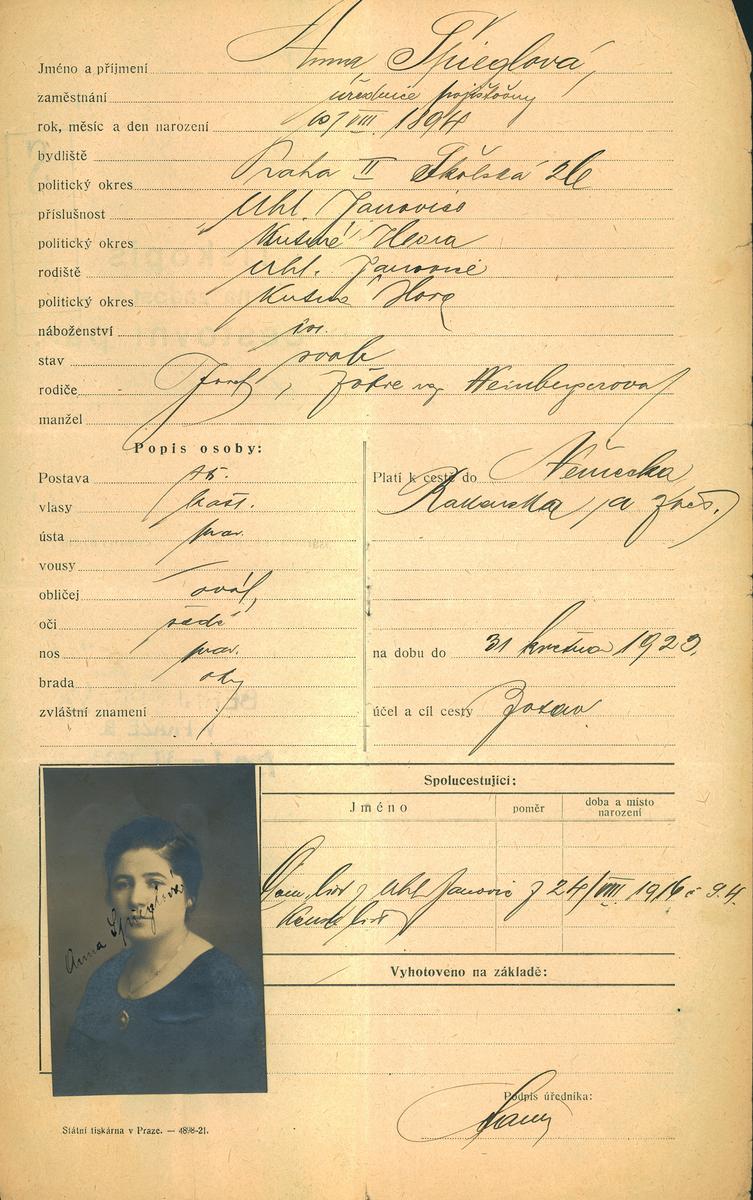 Jméno a příjmení Anna Špieglová
zaměstnání úřednice pojišťovny
rok, měsíc a den narození 10/VIII. 1894
bydliště
politický okres Praha II Školská 26
příslušnost Uhl. Janovice
politický okres Kutná Hora
rodiště Uhl. Janovice
politický okres Kutná Hora
náboženství isr.
stav svob
rodiče Josef, Žofie roz. Weinbergerova
manžel
Popis osoby:
Postava stř.
vlasy kašt.
ústa prav.
vousy —
obličej ovál,
oči šedé
nos prav.
brada obyč
zvláštní znamení
Platí k cestě do Německa
Rakouska /a zpět.)
na dobu do 31 května 1923.
účel a cíl cesty Zotav
Spolucestující:
Jméno
poměr
doba a místo
narození
Dom. list z Uhl Janovic z 24/VIII 1916 č 94.
list
Anna Špieglová
Vyhotoveno na základě:
Podpis úředníka:
Státní tiskárna v Praze. — 4898-21.